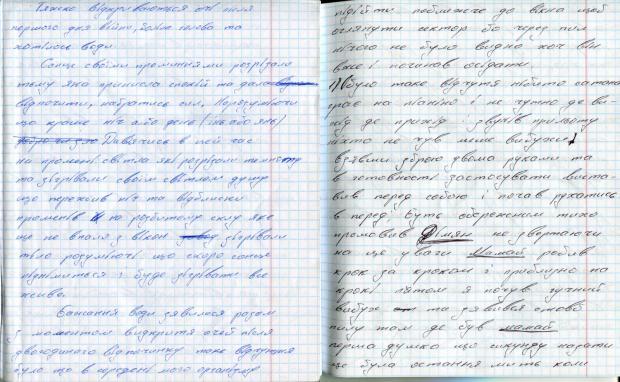 Тяжко відкриваються очі після
першого дня війни, болит голова та
хотілось води.
Сонце своїми променями розрізали
тьму яка принесла спокій та дала
відпочити, набратись сил. Порозуміючи
що краще ніч або день (інь або янь)
Дивлячись в цей час
на промені світла які розрізали темноту
та зігрівали своїм світлом душу
що пережив ніч та відблиски
променів на розбитому склу яке
ще не впали з вікон зігрівали
тіло розуміючі що скоро сонце
підніметься і буде зігрівати все
живе.
Бажання води зявилося разом
з моментом відкриття очей після
двогодиного відпочинку таке відчуття
було що в середені мого організму
підійти поближче до вікна щоб
оглянути сектор бо через пил
нічого не було видно хоч він
вже і починав осідати
було таке відчуття нібито сатана
грає на піаніно і не чутно де
де прихід і звуків прильоту
ніхто не чув лише вибухи
взявши зброю двома руками та
в готовності застосувати
перед собою і почав рухатись
в перед, буть обережним тихо
промовив Дімян не звертаючи
на це уваги Мамай робив
крок за кроком і приблизно на
крокі пятом я почув гучний
вибух та зявився стовб
пилу там де був мамай
перша думка що секунду назад
це була остання мить коли